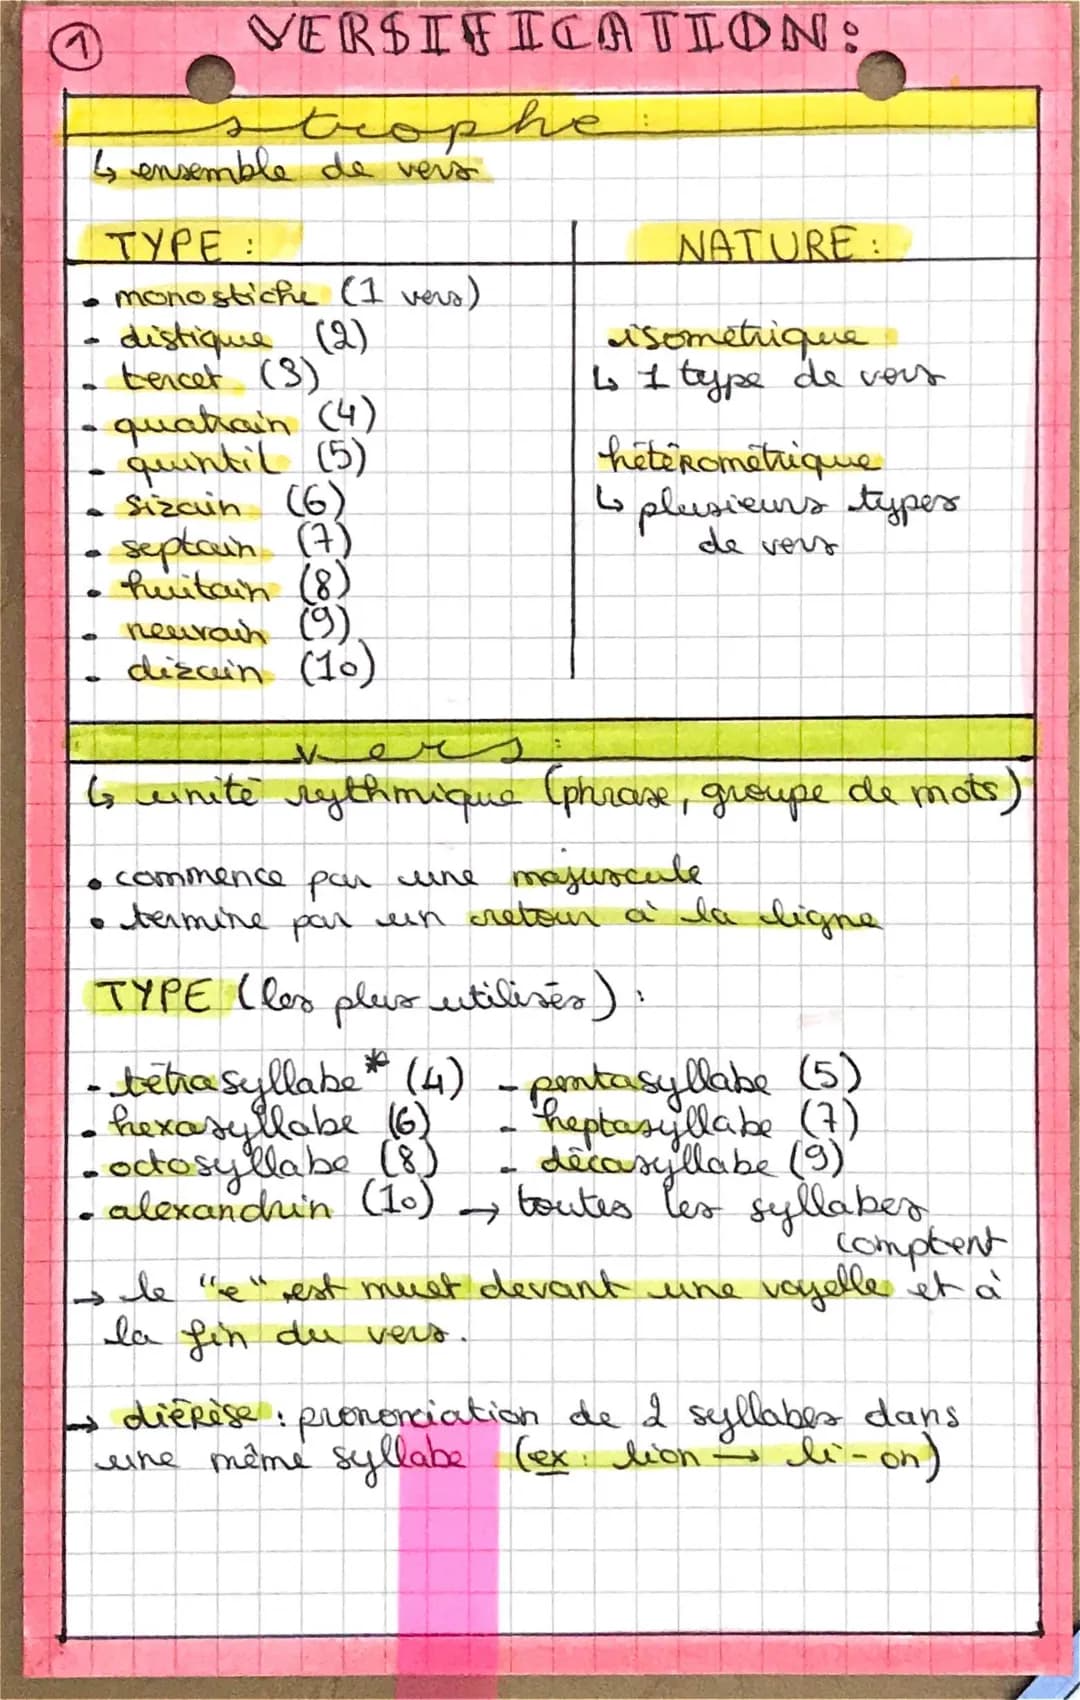 1
VERSIFICATION:
strophe:
↳ ensemble de vers
TYPE :
• monostiche (1 vers)
- distique (2)
- tercet (3)
- quatrain (4)
- quintil (5)
• sizain (6)
• septain (7)
• huitain (8)
• neuvain (9)
- dizain (10)
NATURE :
isométrique
↳ 1 type de vers
hétérométrique
↳ plusieurs types
de vers
vers:
↳ unité rythmique (phrase, groupe de mots)
• commence par une majuscule
• termine par un retour à la ligne
TYPE (les plus utilisés) :
- tétrasyllabe* (4) - pentasyllabe (5)
• hexasyllabe (6) - heptasyllabe (7)
- octosyllabe (8) - décasyllabe (9)
• alexandrin (10) → toutes les syllabes
comptent
→ le "e" est muet devant une voyelle et à
la fin du vers.
→ diérèse : prononciation de 2 syllabes dans
une même syllabe (ex : lion → li-on)